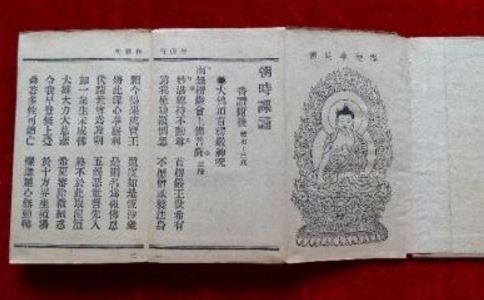 朝時課誦
大佛頂首楞嚴神呪
南無楞嚴會上佛菩薩 三稱
妙湛總持不動尊 首楞嚴王世希有
銷我億劫顛倒想 不歷僧祇獲法身
願今得果成寶王 還度如是恆沙衆
將此深心奉塵刹 是則名爲報佛恩
伏請世尊爲證明 五濁惡世誓先入
如一衆生未成佛 終不於此取泥洹
大雄大力大慈悲 希更審除微細惑
令我早登無上覺 於十方界坐道場
舜若多性可銷亡 爍迦羅心無動轉